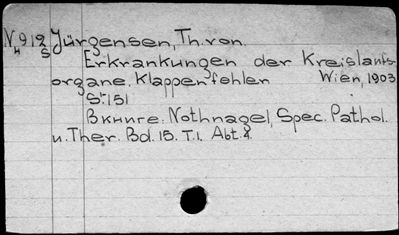 Jürgensen, Th. von.
Erkrankungen der Kreislaufs-
organe. Klappenfehler Wien, 1903
S. 151
В книге. Nothnagel, Spec. Pathol.
u. Ther. Bd. 15. T. 1. Abt. 4.